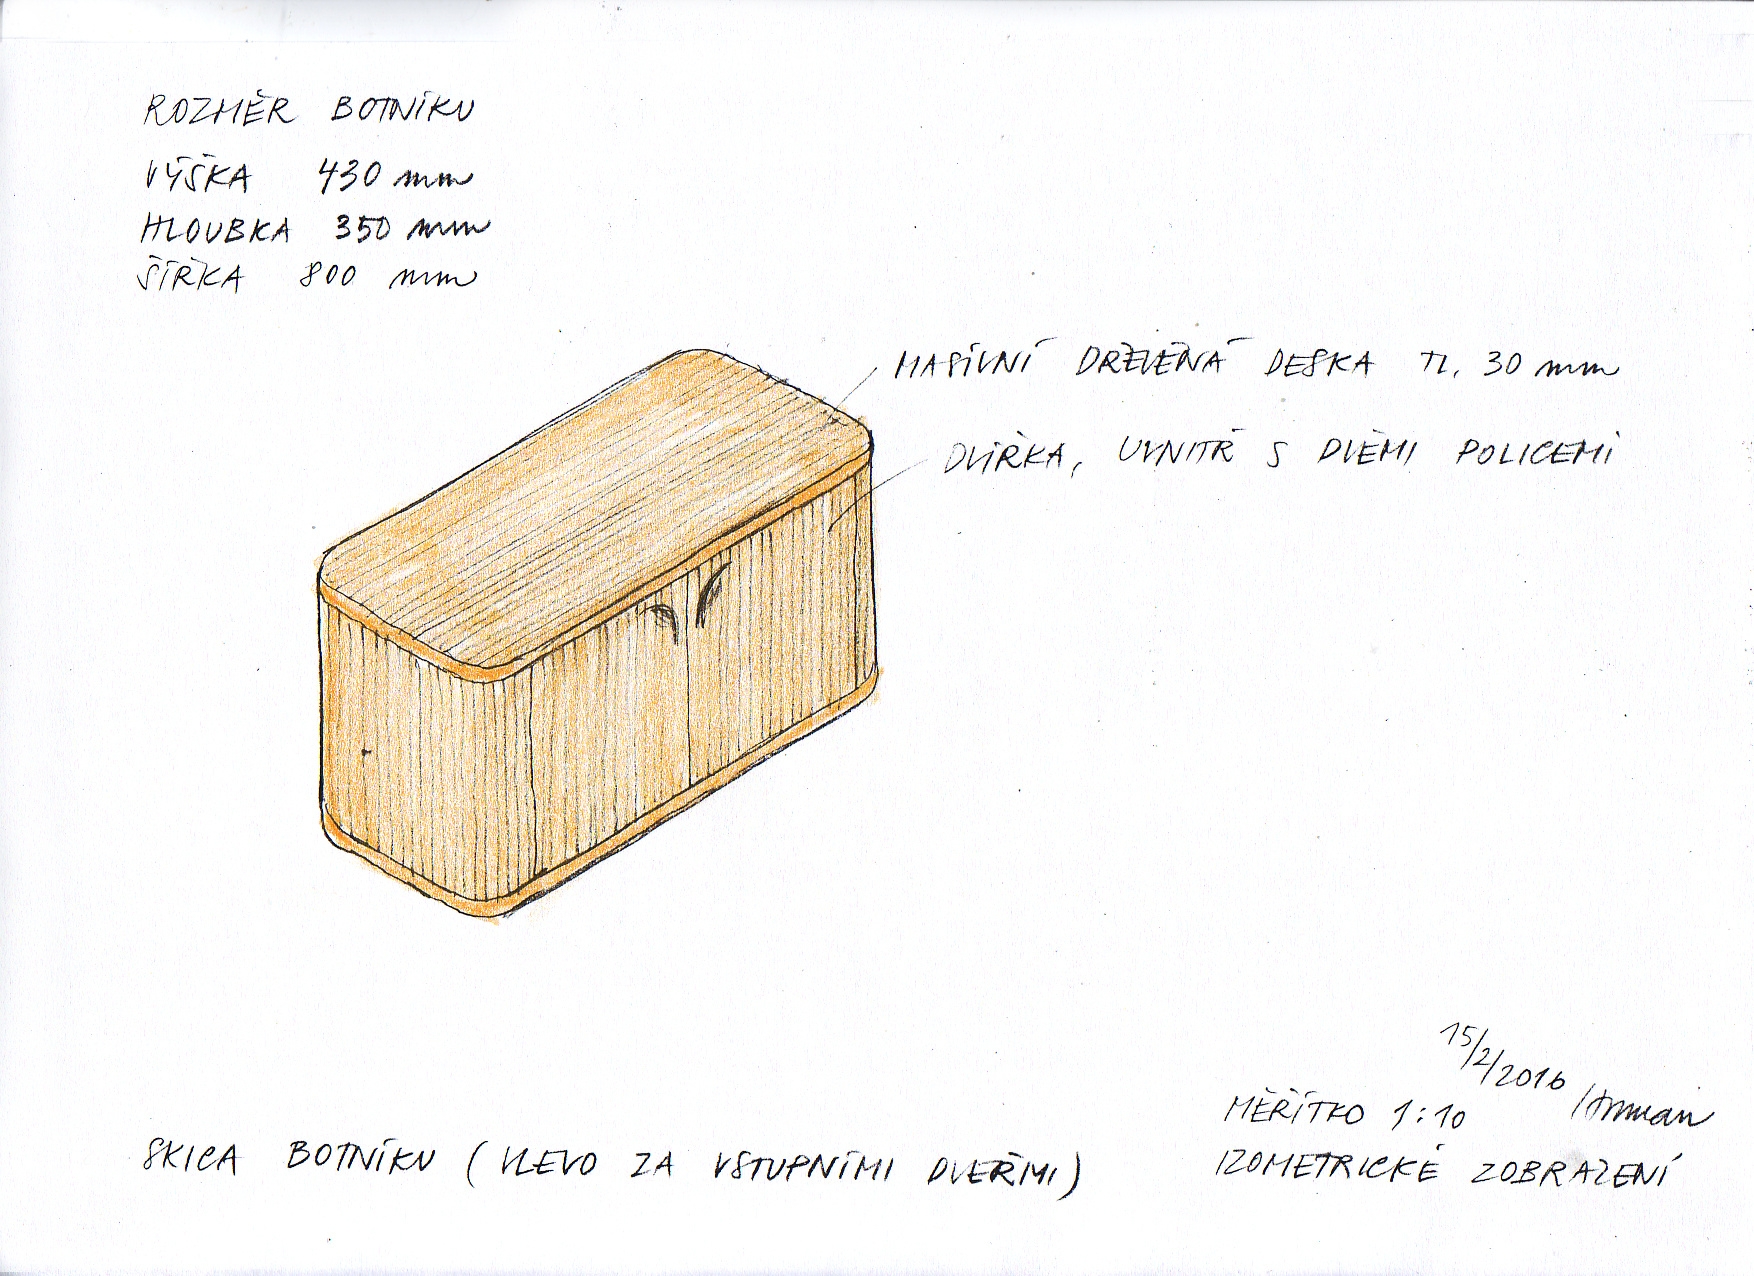 ROZMĚR BOTNÍKU
VÝŠKA 430 mm
HLOUBKA 350 mm
ŠÍŘKA 800 mm
MASÍVNÍ DŘEVĚNÁ DESKA TL. 30 mm
DVÍŘKA, UVNITŘ S DVĚMI POLICEMI
15/2/2016
MĚŘÍTKO 1:10
SKICA BOTNÍKU (VLEVO ZA VSTUPNÍMI DVEŘMI)
IZOMETRICKÉ ZOBRAZENÍ